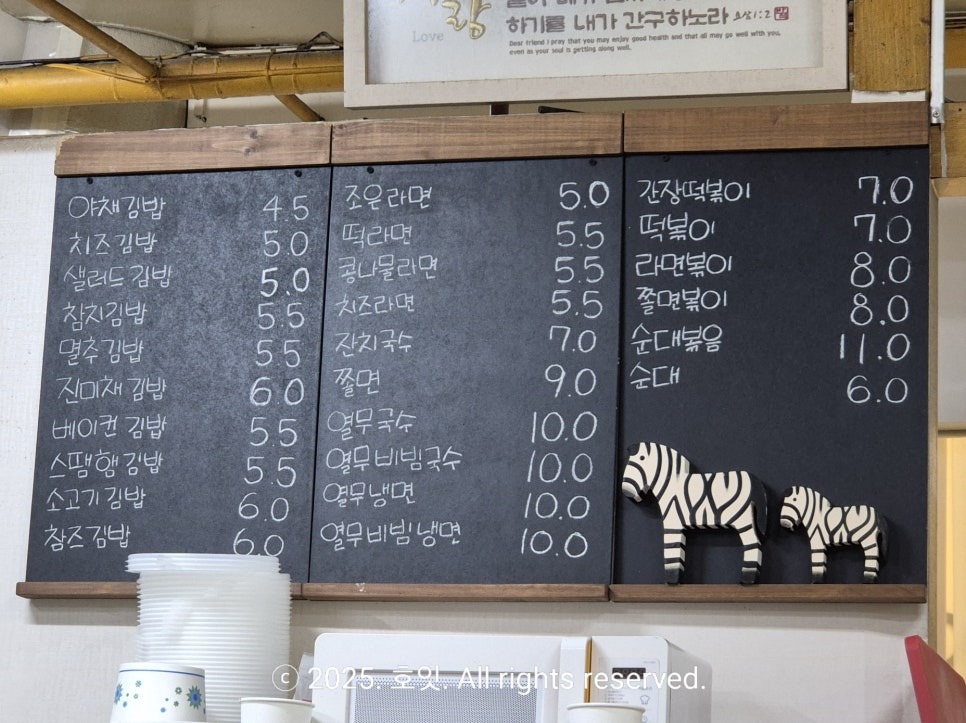 랑
Love
하기를 내가 간구하노라 요삼1:2
Dear friend I pray that you may enjoy good health and that all may go well with you,
even as your soul is getting along well.
야채김밥 4.5
치즈김밥 5.0
샐러드김밥 5.0
참치김밥 5.5
멸추김밥 5.5
진미채김밥 6.0
베이컨김밥 5.5
스땜햄김밥 5.5
소고기김밥 6.0
참즈김밥 6.0
조은라면 5.0
떡라면 5.5
콩나물라면 5.5
치즈라면 5.5
잔치국수 7.0
쫄면 9.0
열무국수 10.0
열무비빔국수 10.0
열무냉면 10.0
열무비빔냉면 10.0
간장떡볶이 7.0
떡볶이 7.0
라면볶이 8.0
쫄면볶이 8.0
순대볶음 11.0
순대 6.0
ⓒ 2025. 호잇. All rights reserved.